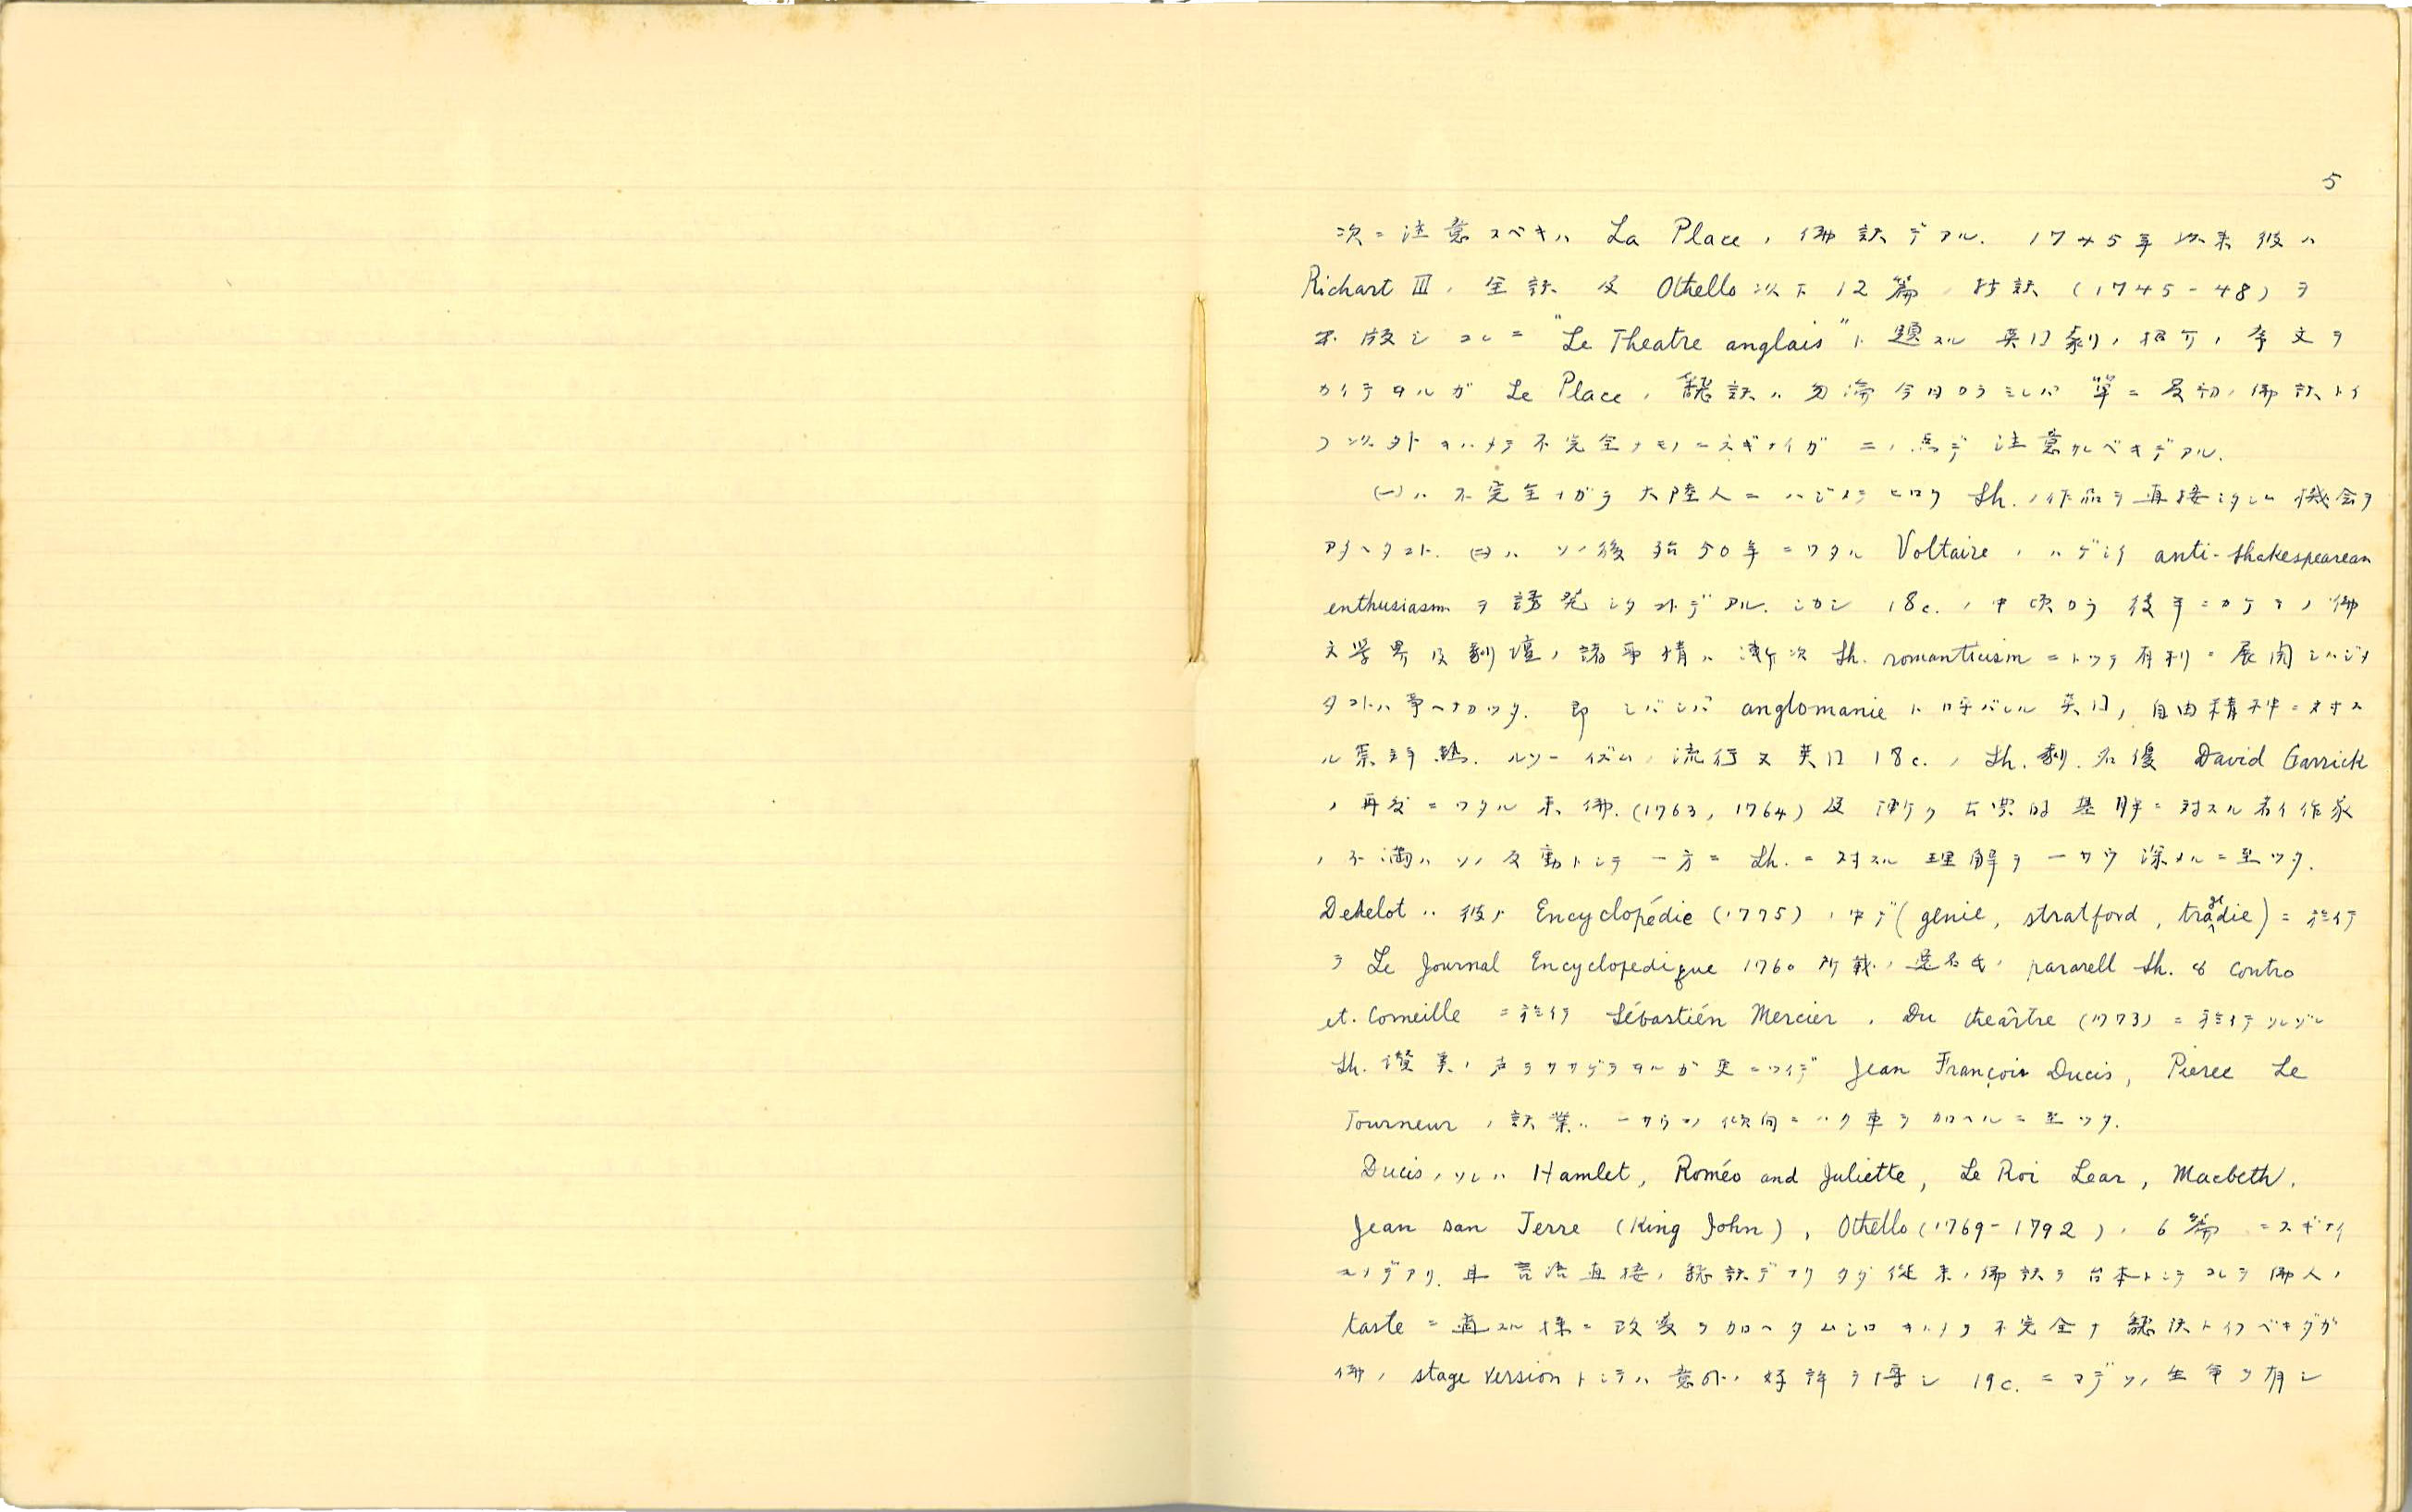 5
次ニ注意スベキハ La Place ノ 佛訳デアル. 1745年以来彼ハ
Richart III ノ 全訳 及 Othello 以下 12篇ノ 抄訳 (1745-48) ヲ
出版シ コレニ "Le Theatre anglais" ト 題スル 英国劇ノ紹介ノ序文ヲ
カイテヰルガ Le Place ノ 飜訳ハ 勿論今日カラミレバ 単ニ最初ノ佛訳トイ
フ以外キハメテ不完全ナモノニスギナイガ 二ノ点デ 注意サルベキデアル.
(一)ハ 不完全ナガラ 大陸人ニ ハジメテ ヒロク Sh. ノ作品ヲ直接シタシム機会ヲ
アタヘタコト. (二)ハ ソノ後殆50年ニワタル Voltaire ノ ハゲシイ anti-Shakespearean
enthusiasm ヲ 誘発シタコトデアル. シカシ 18c. ノ中頃カラ後半ニカケテノ佛
文学界及劇壇ノ諸事情ハ 漸次 Sh. romanticism ニトツテ有利ニ展開シハジメ
タコトハ争ヘナカツタ. 即 シバシバ anglomanie ト呼バレル 英国ノ自由精神ニタイス
ル崇拝熱. ルソーイズムノ流行又英国 18c. ノ Sh. 劇ノ名優 David Garrick
ノ再度ニワタル来佛. (1763, 1764) 及 漸ク古典的基準ニ対スル若イ作家
ノ不満ハ ソノ反動トシテ 一方ニ Sh. ニ対スル 理解ヲ一サウ深メルニ至ツタ.
Dedelot ハ 彼ノ Encyclopédie (1775) ノ中デ (genie, stratford, tragédie) ニ於イテ
ヲ Le Journal Encyclopedique 1760 所載ノ 匿名氏ノ pararell Sh. & contro
et. Corneille ニ於イテ Sébastién Mercier ノ Du theâtre (1773) ニ於イテソレゾレ
Sh. 讃美ノ声ヲササゲテヰルガ 更ニツイデ Jean François Ducis, Pierec Le
Tourneur ノ訳業ハ 一サウコノ傾向ニハク車ヲ加ヘルニ至ツタ.
Ducis ノソレハ Hamlet, Roméo and Juliette, Le Roi Lear, Macbeth,
Jean san Terre (King John), Othello (1769-1792) ノ 6篇ニスギナイ
ノデアリ, 且 言語直接ノ飜訳デナクタダ従来ノ佛訳ヲ台本トシテコレヲ佛人ノ
taste ニ適スル様ニ改変ヲ加ヘタムシロキハメテ不完全ナ飜訳トイフベキダガ
佛ノ stage version トシテハ意外ノ好評ヲ博シ 19c. ニマデソノ生命ヲ有シ